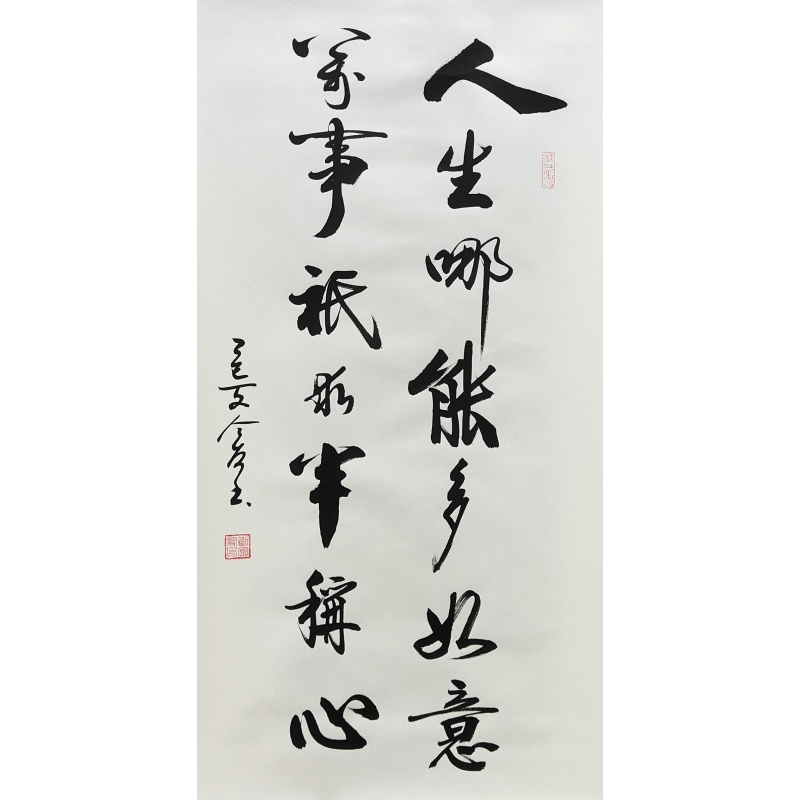 人生哪能多如意
萬事祇求半稱心